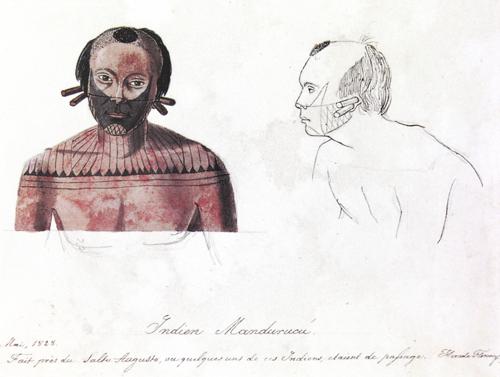 Indien Mandurucú.
Mai, 1828.
Fait près du Salto Augusto, ou quelques uns de ces Indiens, etaient de passage.